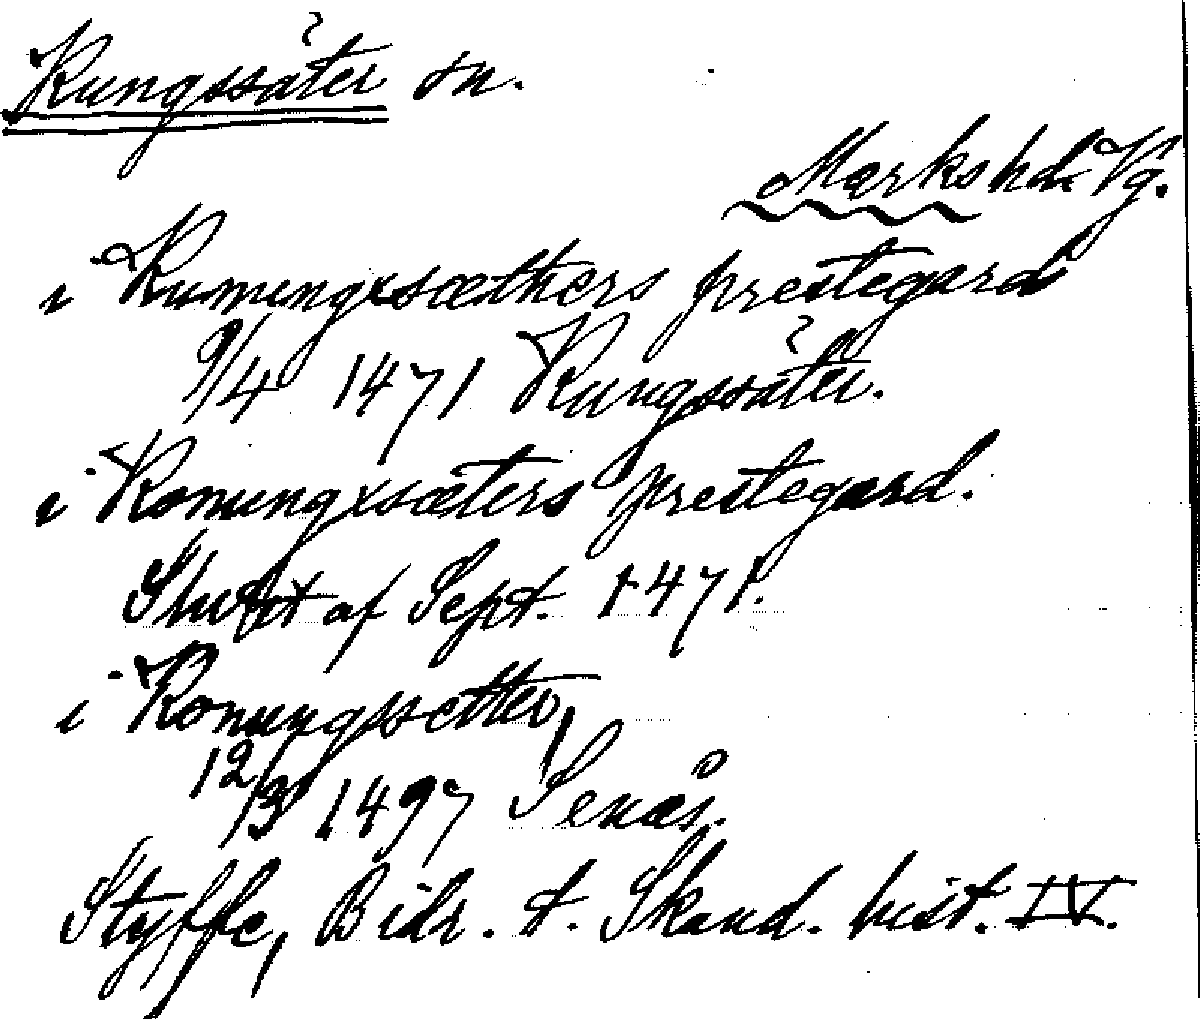 Kungssäter sn.
Marks hd. Vg.
i Kunungxsæthers prestegard
9/4 1471 Kungsäter.
i Konungxsæters prestegard.
Slutet af Sept. 1471.
i Konungssetter,
12/3 1497 Lenås.
Styffe, Bidr. t. Skand. hist. IV.